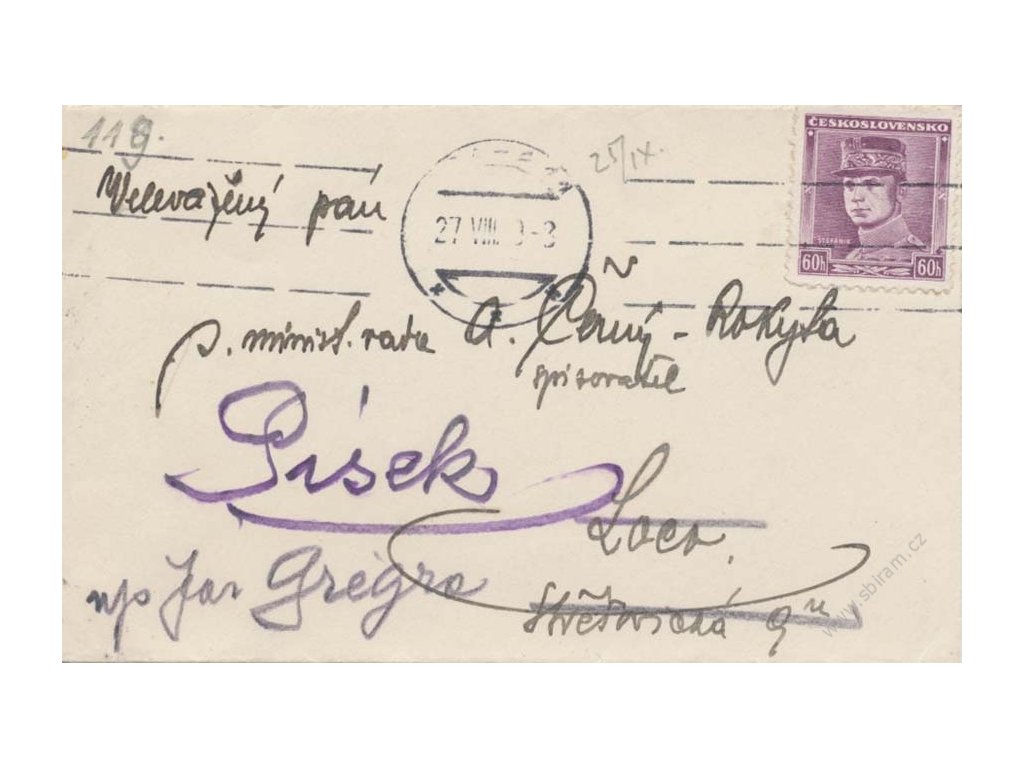 119.
25/IX.
ČESKOSLOVENSKO
ŠTEFÁNIK
60h 60h
27 VIII
Velevážený pán
p. minist. rada A. Černý - Rokyta
spisovatel
Písek
Loco,
Jar Grégra
Střešovická 9
www.sbiram.cz